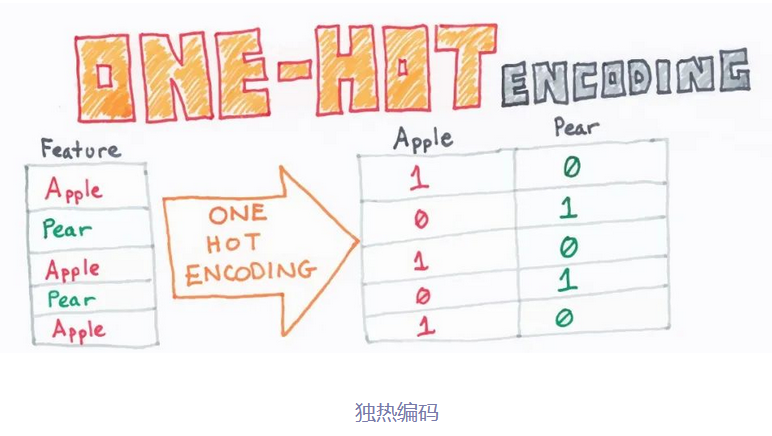 ONE-HOT ENCODING
Feature
Apple
Pear
Apple
Pear
Apple
ONE
HOT
ENCODING
Apple Pear
1 0
0 1
1 0
0 1
1 0
独热编码